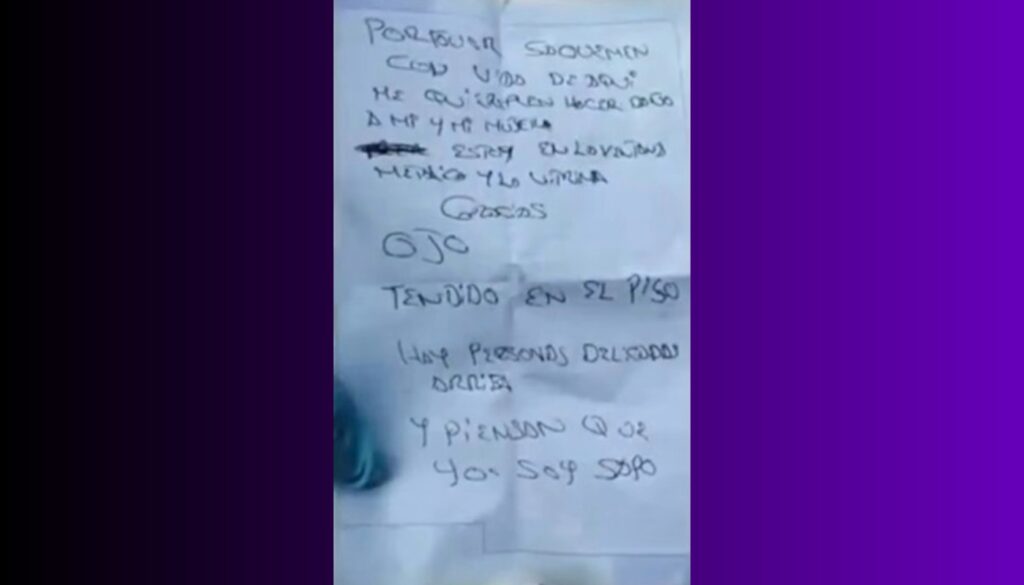 PORFAVOR SAQUEMEN
CON VIDA DE AQUI
ME QUIEREN HACER DAÑO
A MI Y MI
ESTOY EN LA
Y LA VITRINA
GRACIAS
OJO
TENDIDO EN EL PISO
HAY PERSONAS DELICADAS
ARRIBA
Y PIENSAN QUE
YO SOY SAPO